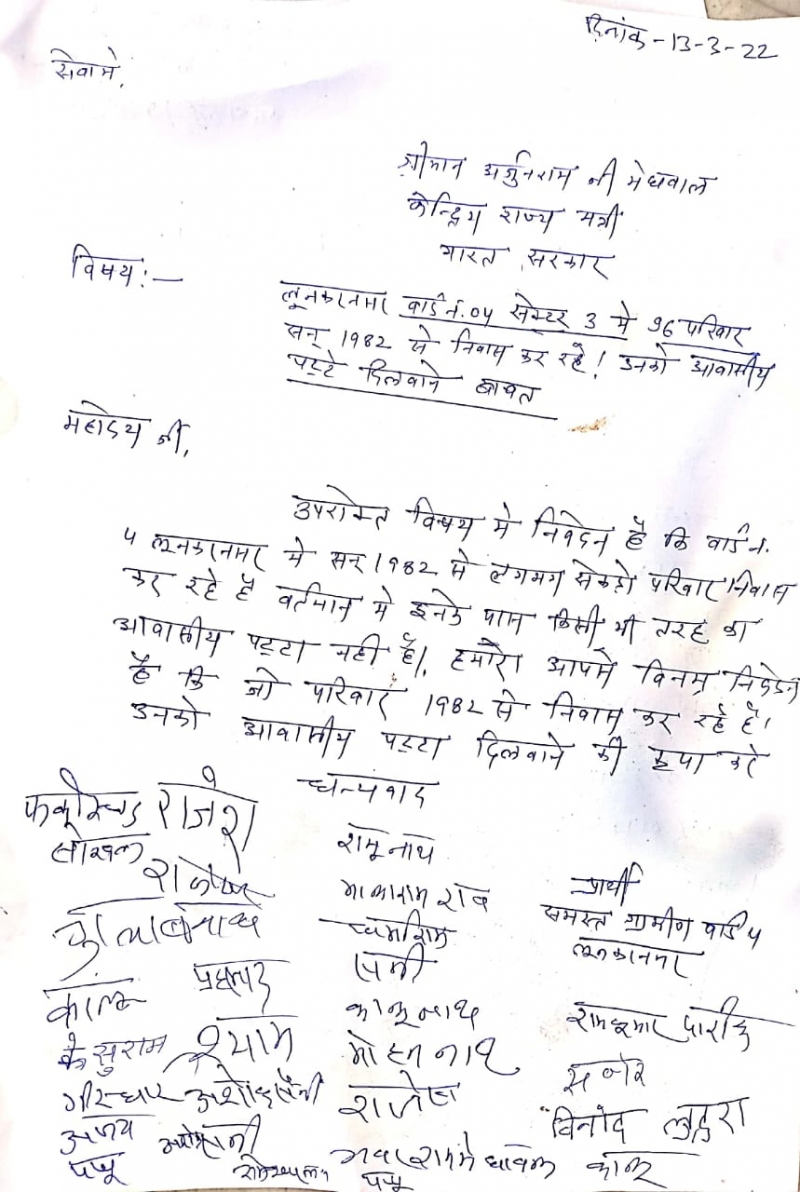 दिनांक-13-3-22
सेवामे,
श्रीमान अर्जुनराम जी मेघवाल
केन्द्रिय राज्य मत्री
भारत सरकार
विषय:-
लूनकरनसर वार्ड नं.04 सेक्टर 3 मे 96 परिवार
सन् 1982 से निवास कर रहे! उनको आवासीय
पट्टे दिलवाने बाबत
महोदय जी,
उपरोक्त विषय मे निवेदन है कि वार्ड नं.
4 लूनकरनसर मे सन् 1982 से लगभग सेकडो परिवार निवास
कर रहे है वर्तमान मे इनके पास किसी भी तरह का
आवासीय पट्टा नही है। हमारा आपसे विनम्र निवेदन
है कि जो परिवार 1982 से निवास कर रहे है।
उनको आवासीय पट्टा दिलवाने की कृपा करे
धन्यवाद
राजेश
रामूनाथ
प्रार्थी
धर्माराम
समस्त ग्रामीण वार्ड 4
लूनकरनसर
कालू
कालूनाथ
रामकुमार पारीक
केसुराम
श्याम
मोहननाथ
गीरधारी
अशोक सैनी
राजेश
विनोद
अजय
पप्पू
पप्पू
कालू